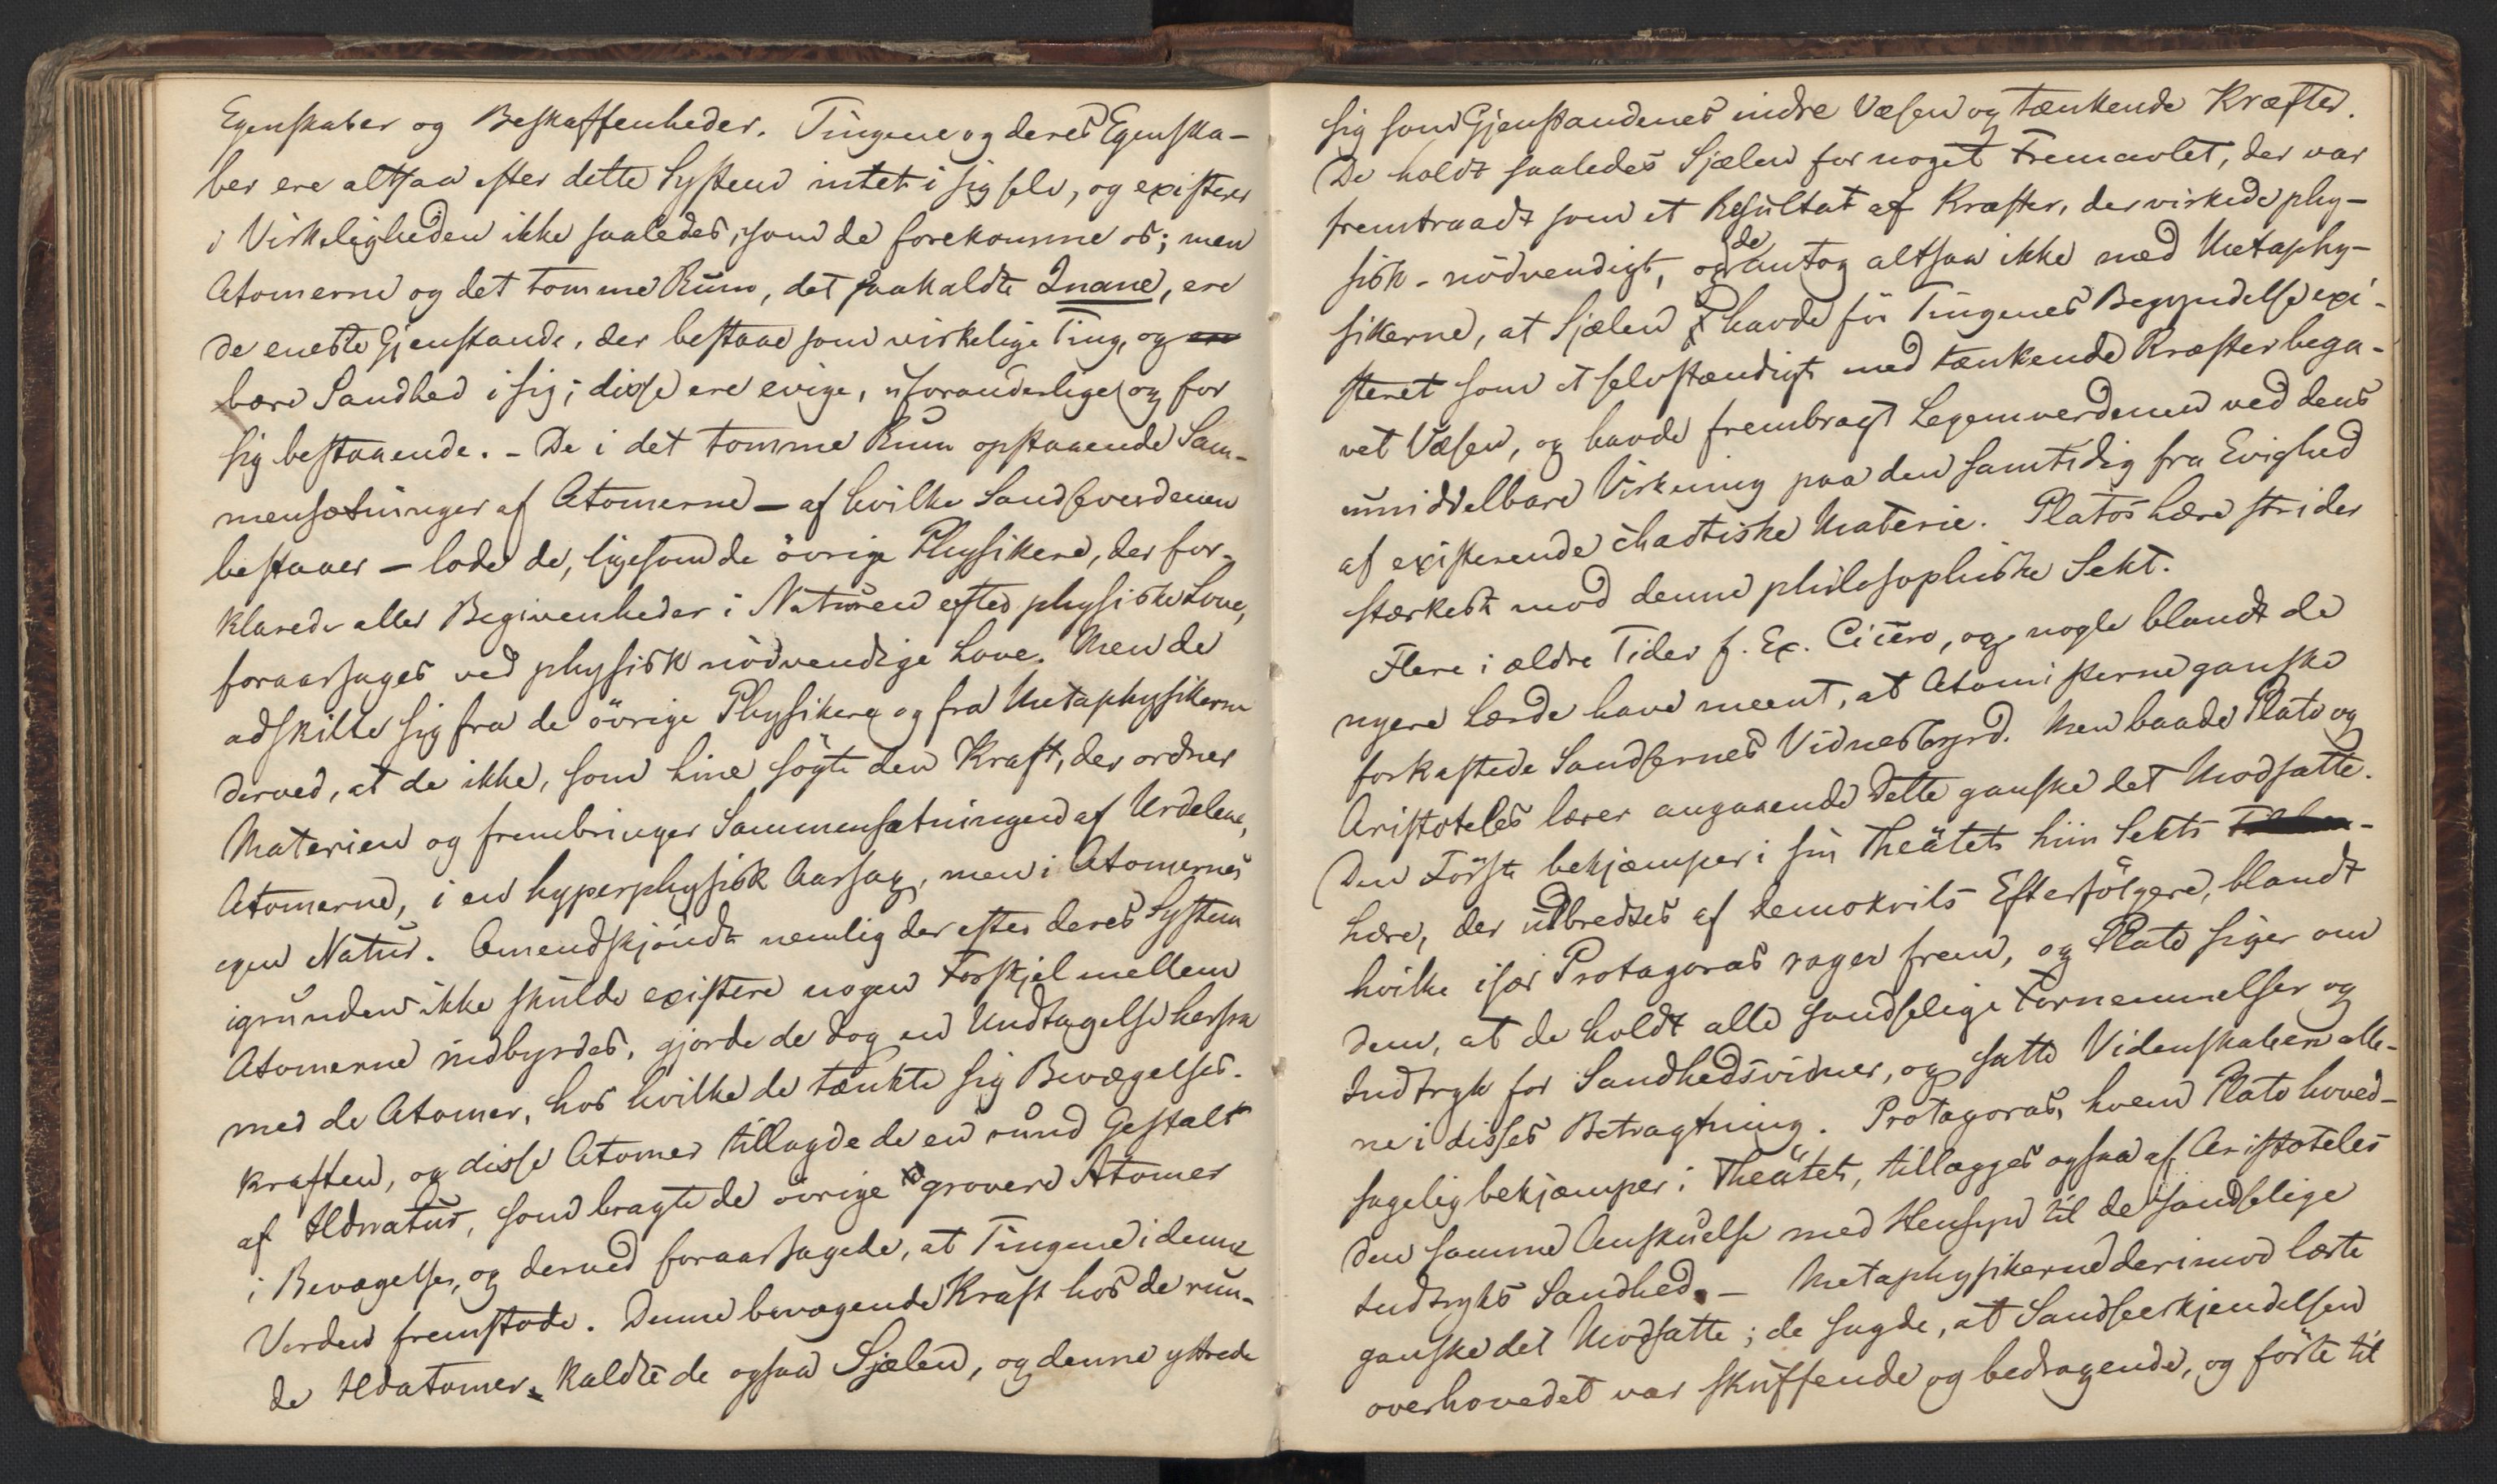 Egenskaber og Beskaffenheder. Tingene og deres Egenska-
ber ere altsaa efter dette System intet i sig selv, og existere
i Virkeligheden ikke saaledes, som de forekomme os; men
Atomerne og det tomme Rum, det saakaldte Inane, ere
de eneste Gjenstande, der bestaae som virkelige Ting, og ere
bære Sandhed i sig; disse ere evige, uforanderlige og for
sig bestaaende. - De i det tomme Rum opstaaende Sam-
mensætninger af Atomerne - af hvilke Sandseverdenen
bestaaer - lode de, ligesom de övrige Physikere, der for-
klarede alle Begivenheder i Naturen efter physiske Love,
foraarsages ved physisk nödvendige Love. Men de
adskilte sig fra de övrige Physikere og fra Metaphysikerne
derved, at de ikke, som hine sögte den Kraft, der ordner
Materien og frembringer Sammensætningen af Urdelene,
Atomerne, i en hyperphysisk Aarsag, men i Atomernes
egen Natur. Omendskjöndt nemlig der efter deres System
igrunden ikke skulde existere nogen Forskjel mellem
Atomerne indbyrdes, gjorde de dog en Undtagelse herfra
med de Atomer, hos hvilke de tænkte sig Bevægelses-
kraften, og disse Atomer tillagde de en rund Gestalt
af Ildnatur, som bragte de övrige grovere Atomer
i Bevægelse, og derved foraarsagede, at Tingene i denne
Verden fremstode. Denne bevægende Kraft hos de run-
de Ildatomer kaldte de ogsaa Sjælen, og denne yttrede
sig som Gjenstandenes indre Væsen og tænkende Kræfter.
De holdt saaledes Sjælen for noget Fremavlet, der var
fremtraadt som et Resultat af Kræfter, der virkede phy-
sisk-nödvendigt, og de antog altsaa ikke med Metaphy-
sikerne, at Sjælen havde för Tingenes Begyndelse exi-
steret som et selvstændigt med tænkende Kræfter bega-
vet Væsen, og havde frembragt Legemverdenen ved dens
umiddelbare Virkning paa den samtidig fra Evighed
af existerende chaotiske Materie. Platos Lære strider
stærkest mod denne philosophiske Sekt.
Flere i ældre Tider f. Ex. Cicero, og nogle blandt de
nyere Lærde have meent, at Atomisterne ganske
forkastede Sandsernes Vidnesbyrd. Men baade Plato og
Aristoteles lærer angaaende dette ganske det Modsatte.
Den Förste bekjæmper i sin Theätet hiin Sekts
Lære, der udbredtes af Demokrits Efterfölgere, blandt
hvilke især Protagoras rager frem, og Plato siger om
dem, at de holdt alle sandselige Fornemmelser og
Indtryk for Sandhedsvidner, og satte Videnskaben alle-
ne i disses Betragtning. Protagoras, hvem Plato hoved-
sagelig bekjæmper i Theätet, tillægges ogsaa af Aristoteles
den samme Anskuelse med Hensyn til de sandselige
Indtryks Sandhed. - Metaphysikerne derimod lærte
ganske det Modsatte; de sagde, at Sandseerkjendelsen
overhovedet var skuffende og bedragende, og förte til